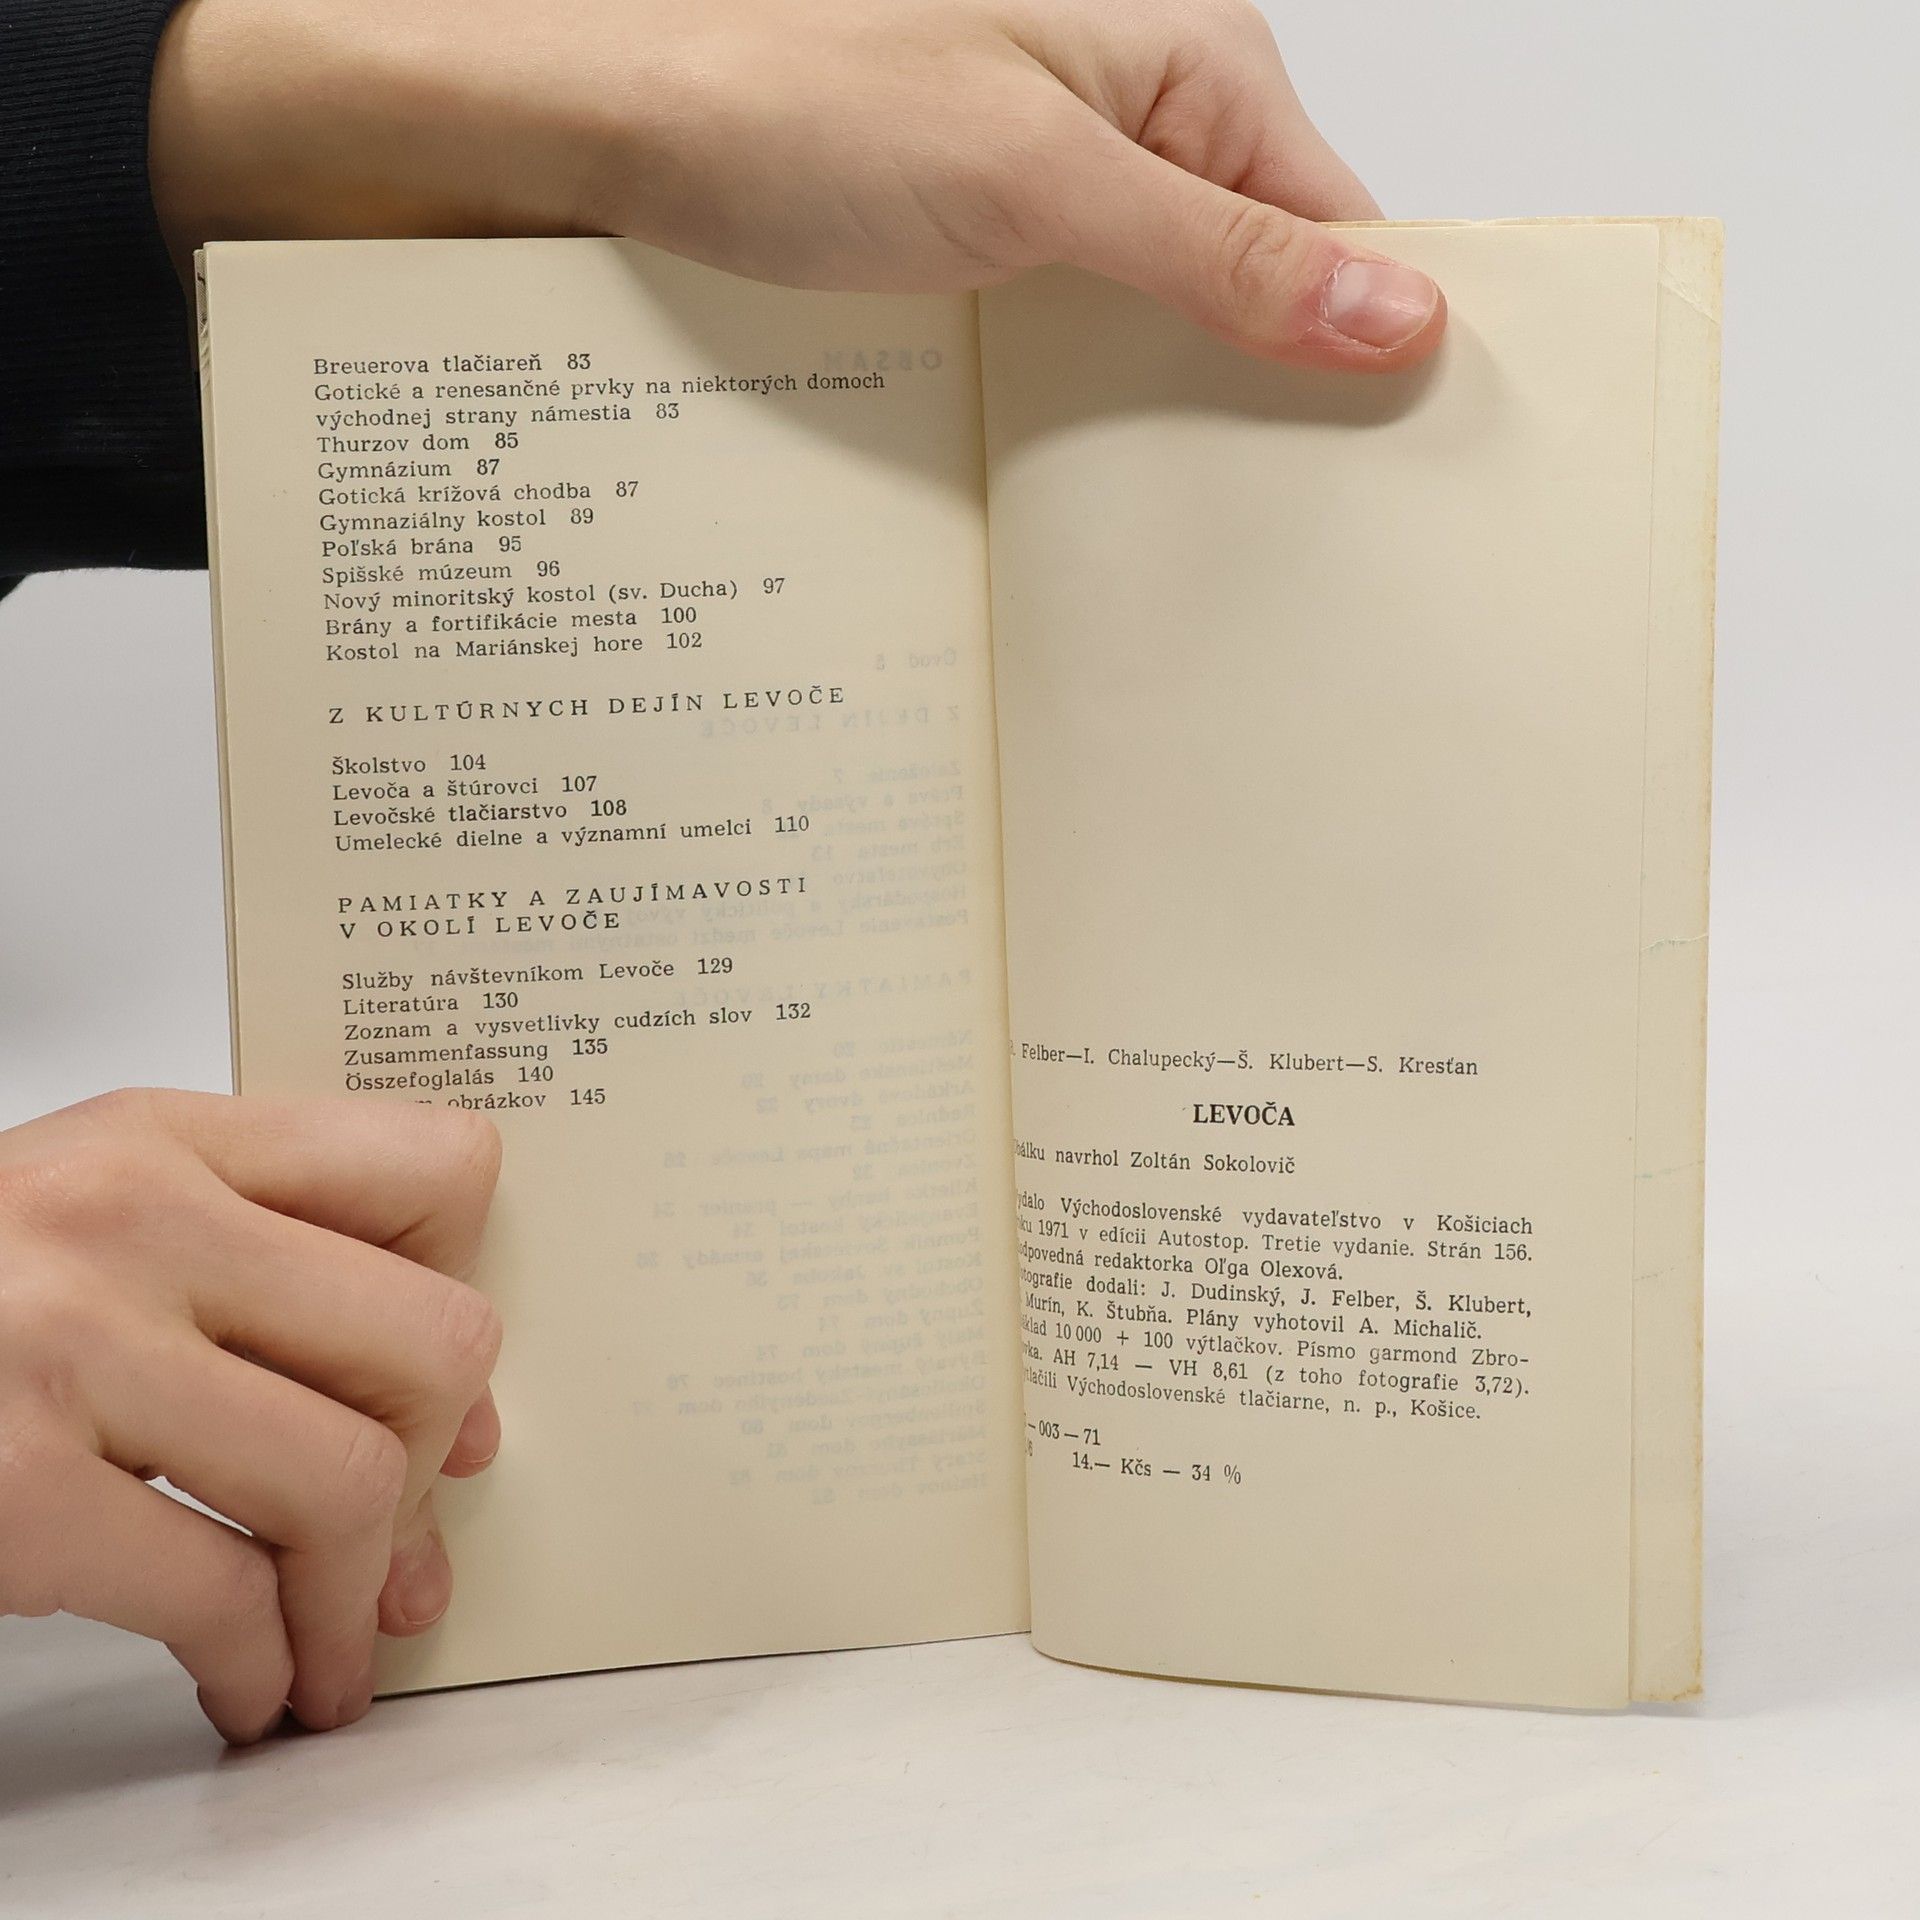 Breuerova tlačiareň 83
Gotické a renesančné prvky na niektorých domoch
východnej strany námestia 83
Thurzov dom 85
Gymnázium 87
Gotická krížová chodba 87
Gymnaziálny kostol 89
Poľská brána 95
Spišské múzeum 96
Nový minoritský kostol (sv. Ducha) 97
Brány a fortifikácie mesta 100
Kostol na Mariánskej hore 102
Z KULTÚRNYCH DEJÍN LEVOČE
Školstvo 104
Levoča a štúrovci 107
Levočské tlačiarstvo 108
Umelecké dielne a významní umelci 110
PAMIATKY A ZAUJÍMAVOSTI
V OKOLÍ LEVOČE
Služby návštevníkom Levoče 129
Literatúra 130
Zoznam a vysvetlivky cudzích slov 132
Zusammenfassung 135
Összefoglalás 140
obrázkov 145
Felber—I. Chalupecký—Š. Klubert—S. Kresťan
LEVOČA
navrhol Zoltán Sokolovič
Východoslovenské vydavateľstvo v Košiciach
1971 v edícii Autostop. Tretie vydanie. Strán 156.
redaktorka Oľga Olexová.
dodali: J. Dudinský, J. Felber, Š. Klubert,
Murín, K. Štubňa. Plány vyhotovil A. Michalič.
10 000 + 100 výtlačkov. Písmo garmond Zbro-
AH 7,14 — VH 8,61 (z toho fotografie 3,72).
Východoslovenské tlačiarne, n. p., Košice.
—003—71
14.— Kčs — 34 %